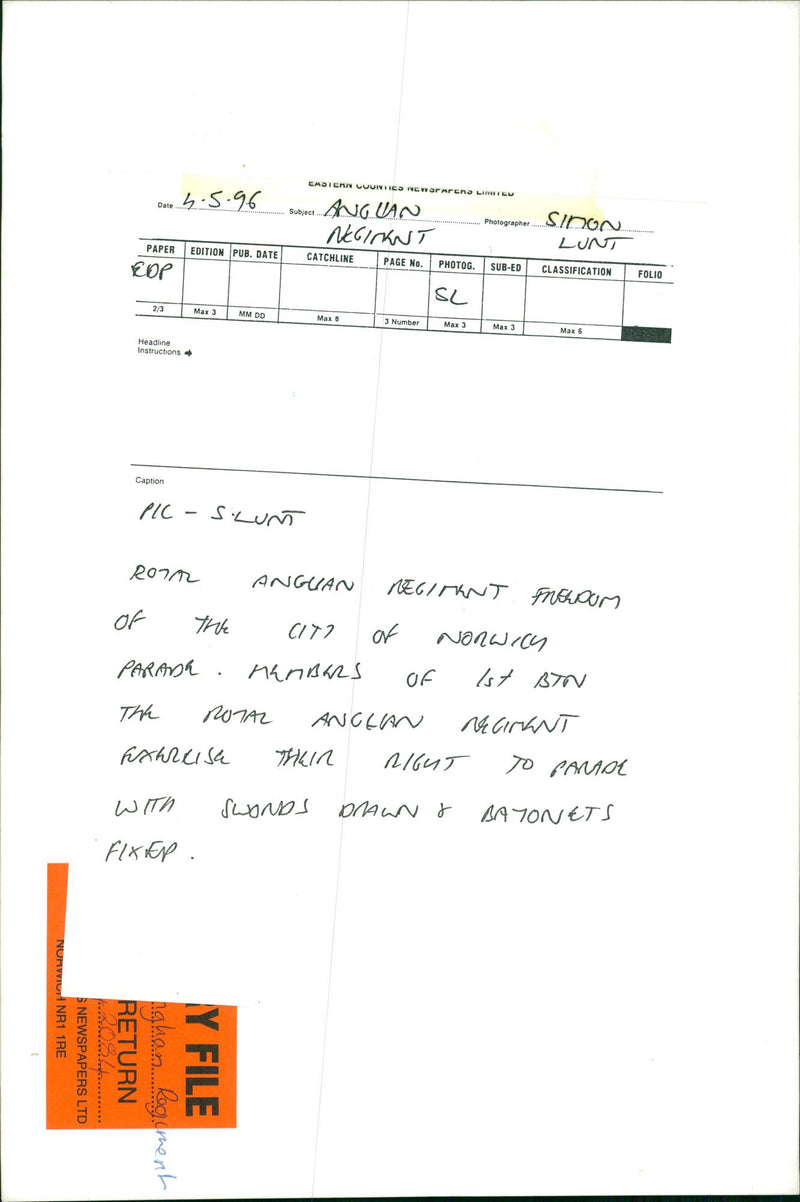 EASTERN COUNTIES NEWSPAPERS LIMITED
Date 4.5.96 Subject ANGLIAN Photographer SIMON
REGIMENT LUNT
PAPER EDITION PUB. DATE CATCHLINE PAGE No. PHOTOG. SUB-ED CLASSIFICATION FOLIO
EDP SL
2/3 Max 3 MM DD Max 8 3 Number Max 3 Max 3 Max 6
Headline
Instructions
Caption
PIC - S.LUNT
ROYAL ANGLIAN REGIMENT FREEDOM
OF THE CITY OF NORWICH
PARADE. MEMBERS OF 1st BTN
THE ROYAL ANGLIAN REGIMENT
EXERCISE THEIR RIGHT TO PARADE
WITH SWORDS DRAWN & BAYONETS
FIXED.
Y FILE
nglian Regiment
RETURN
2084
S NEWSPAPERS LTD
NORWICH NR1 1RE